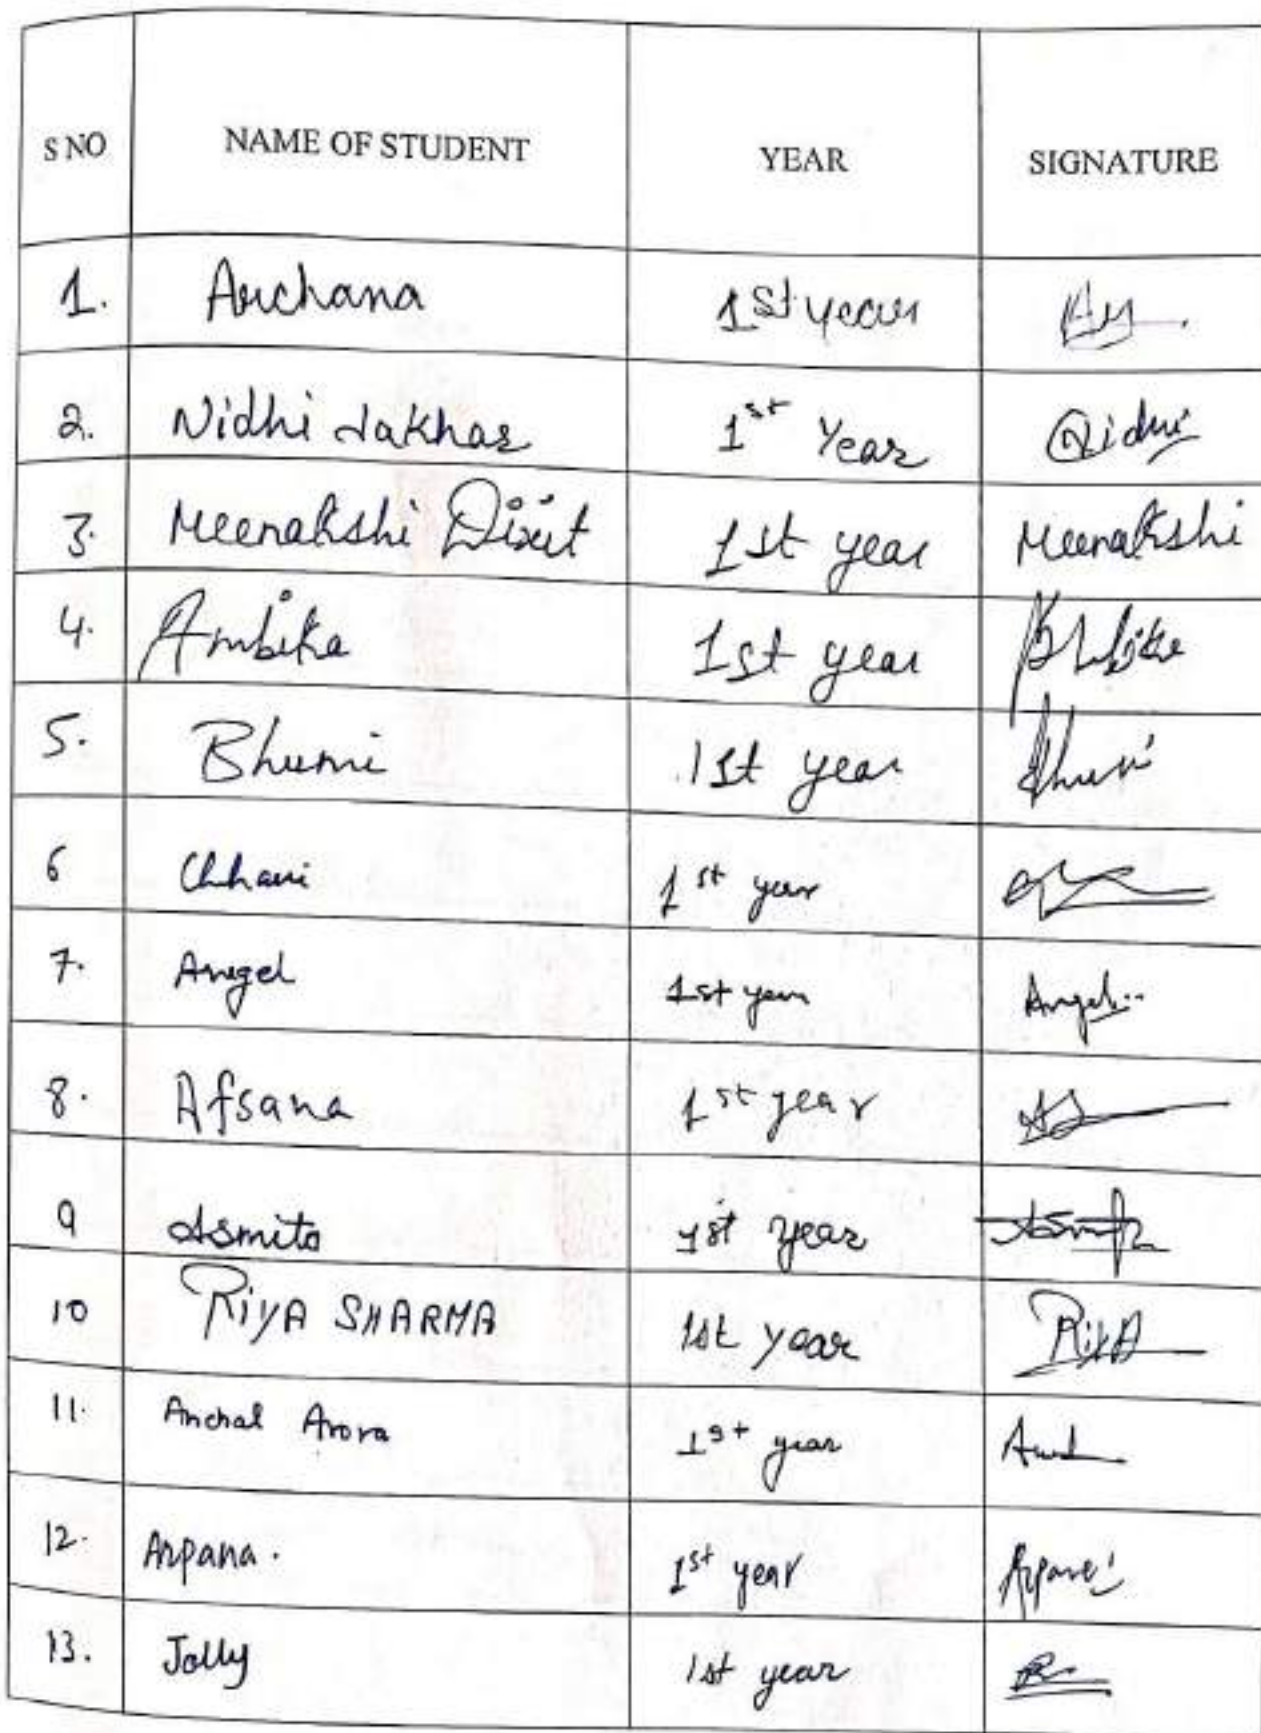 S NO NAME OF STUDENT YEAR SIGNATURE
1. Archana 1st year
2. Nidhi Jakhar 1st Year Nidhi
3. Meenakshi Dixit 1st year Meenakshi
4. Ambika 1st year
5. Bhumi 1st year
6 Chhavi 1st year
7. Angel 1st year Angel
8. Afsana 1st year
9 Asmita 1st year
10 RiYA SHARMA 1st year RiYA
11. Anchal Arora 1st year
12. Arpana. 1st year
13. Jolly 1st year